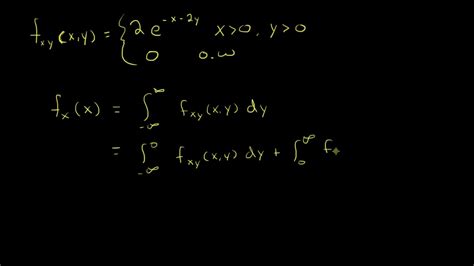 f_{xy}(x,y) = { 2e^{-x-2y} x>0, y>0
0 o.w
f_x(x) = ∫_{-∞}^{∞} f_{xy}(x,y) dy
= ∫_{-∞}^{0} f_{xy}(x,y) dy + ∫_{0}^{∞} f